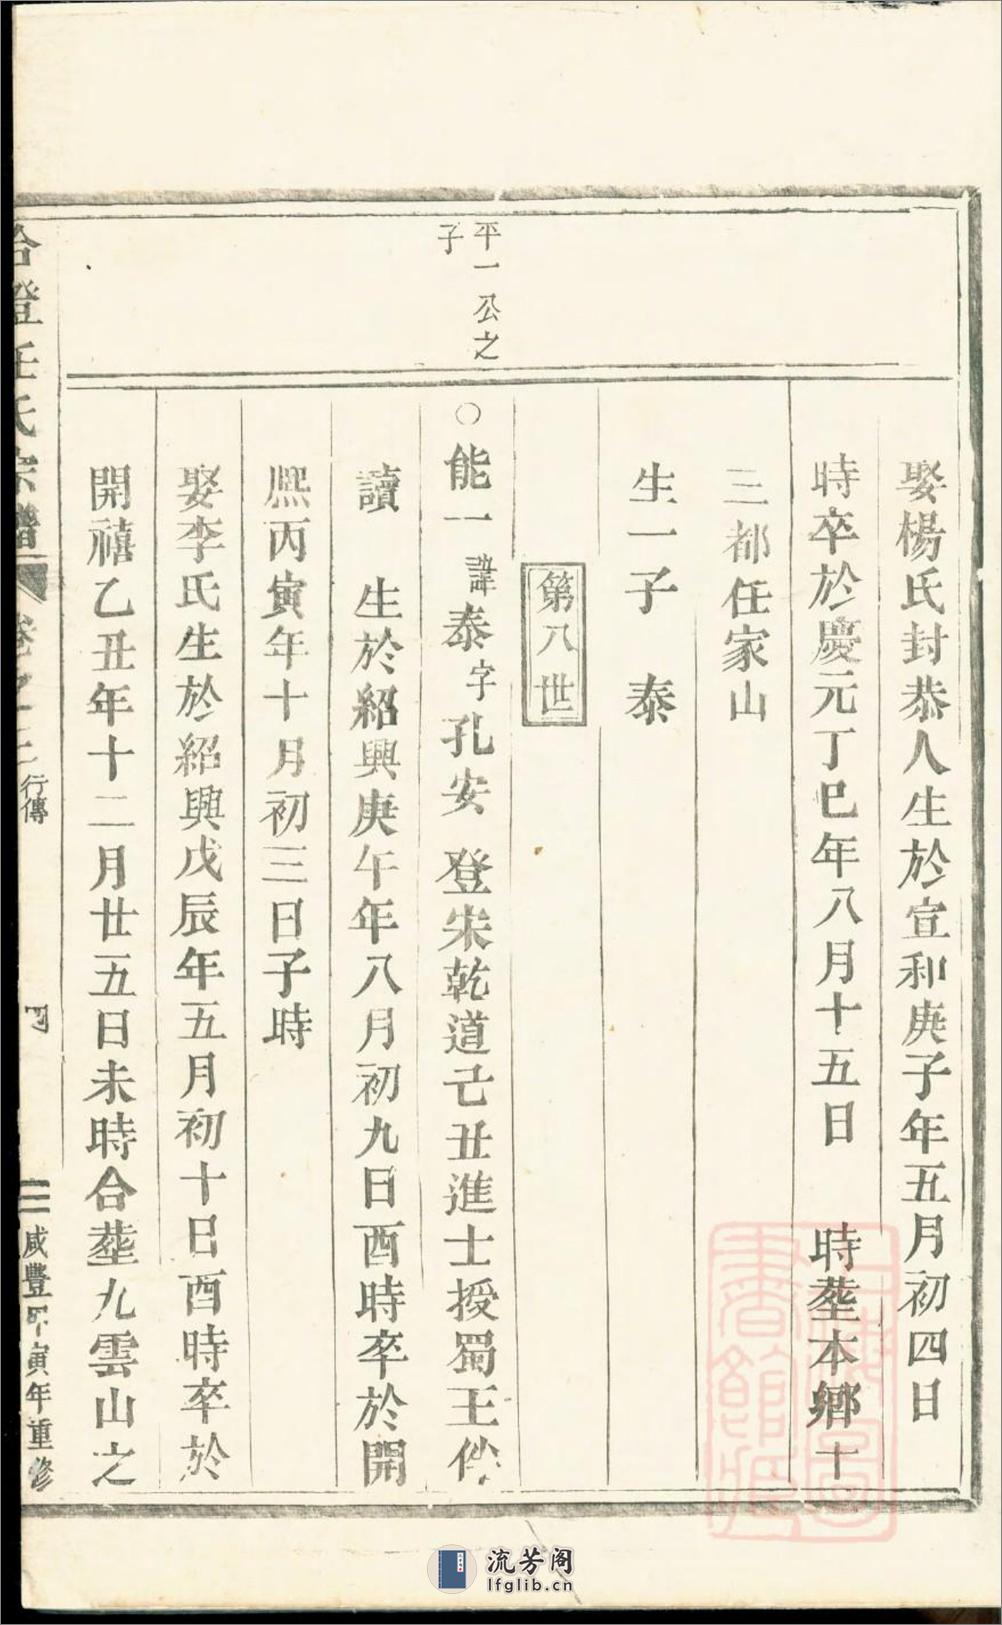 娶楊氏封恭人生於宣和庚子年五月初四日
時卒於慶元丁巳年八月十五日　時塟本鄉十
三都任家山
生一子　泰
第八世
平一公之
子
○能一諱泰字孔安　登宋乾道己丑進士授蜀王伴
讀　生於紹興庚午年八月初九日酉時卒於開
熈丙寅年十月初三日子時
娶李氏生於紹興戊辰年五月初十日酉時卒於
開禧乙丑年十二月廿五日未時合塟九雲山之
任氏宗譜　卷之　行傳　四　咸豐甲寅年重修
上海圖書館藏
流芳阁
lfglib.cn